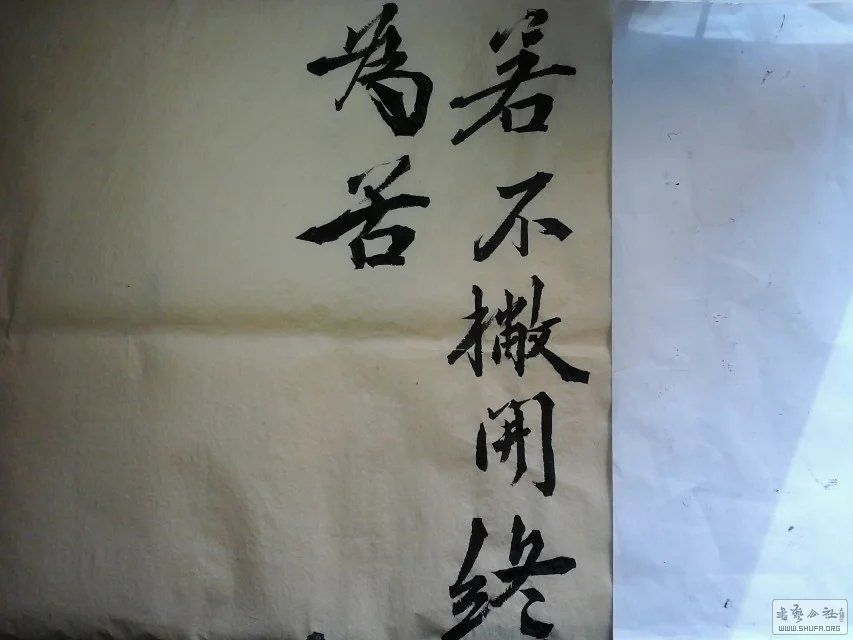 若不撇開終
為苦
书艺公社
WWW.SHUFA.ORG